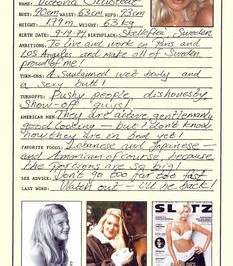 NAME: Victoria Silvstedt
BUST: 90cm WAIST: 63cm HIPS: 93cm
HEIGHT: 1.79m WEIGHT: 63kg
BIRTH DATE: 9-19-74 BIRTHPLACE: Skelleftea, Sweden
AMBITIONS: To live and work in Paris and
Los Angeles and make all of Sweden
proud of me!
TURN-ONS: A suntanned wet body and
a sexy butt!
TURNOFFS: Pushy people, dishonesty
show-off guys!
AMERICAN MEN: They are active, gentlemanly
good looking — but I don't know
how they are in bed yet!
FAVORITE FOODS: Lebanese and Japanese —
and American of course, because
the portions are so big!
SEX ADVICE: Don't go too far too fast
LAST WORD: Watch out — I'll be back!